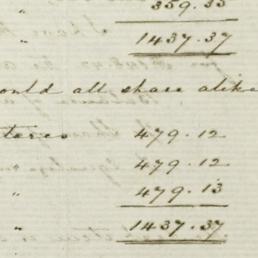 " 359.35
1437.37
ould all share alike
479.12
" 479.12
" 479.13
1437.37